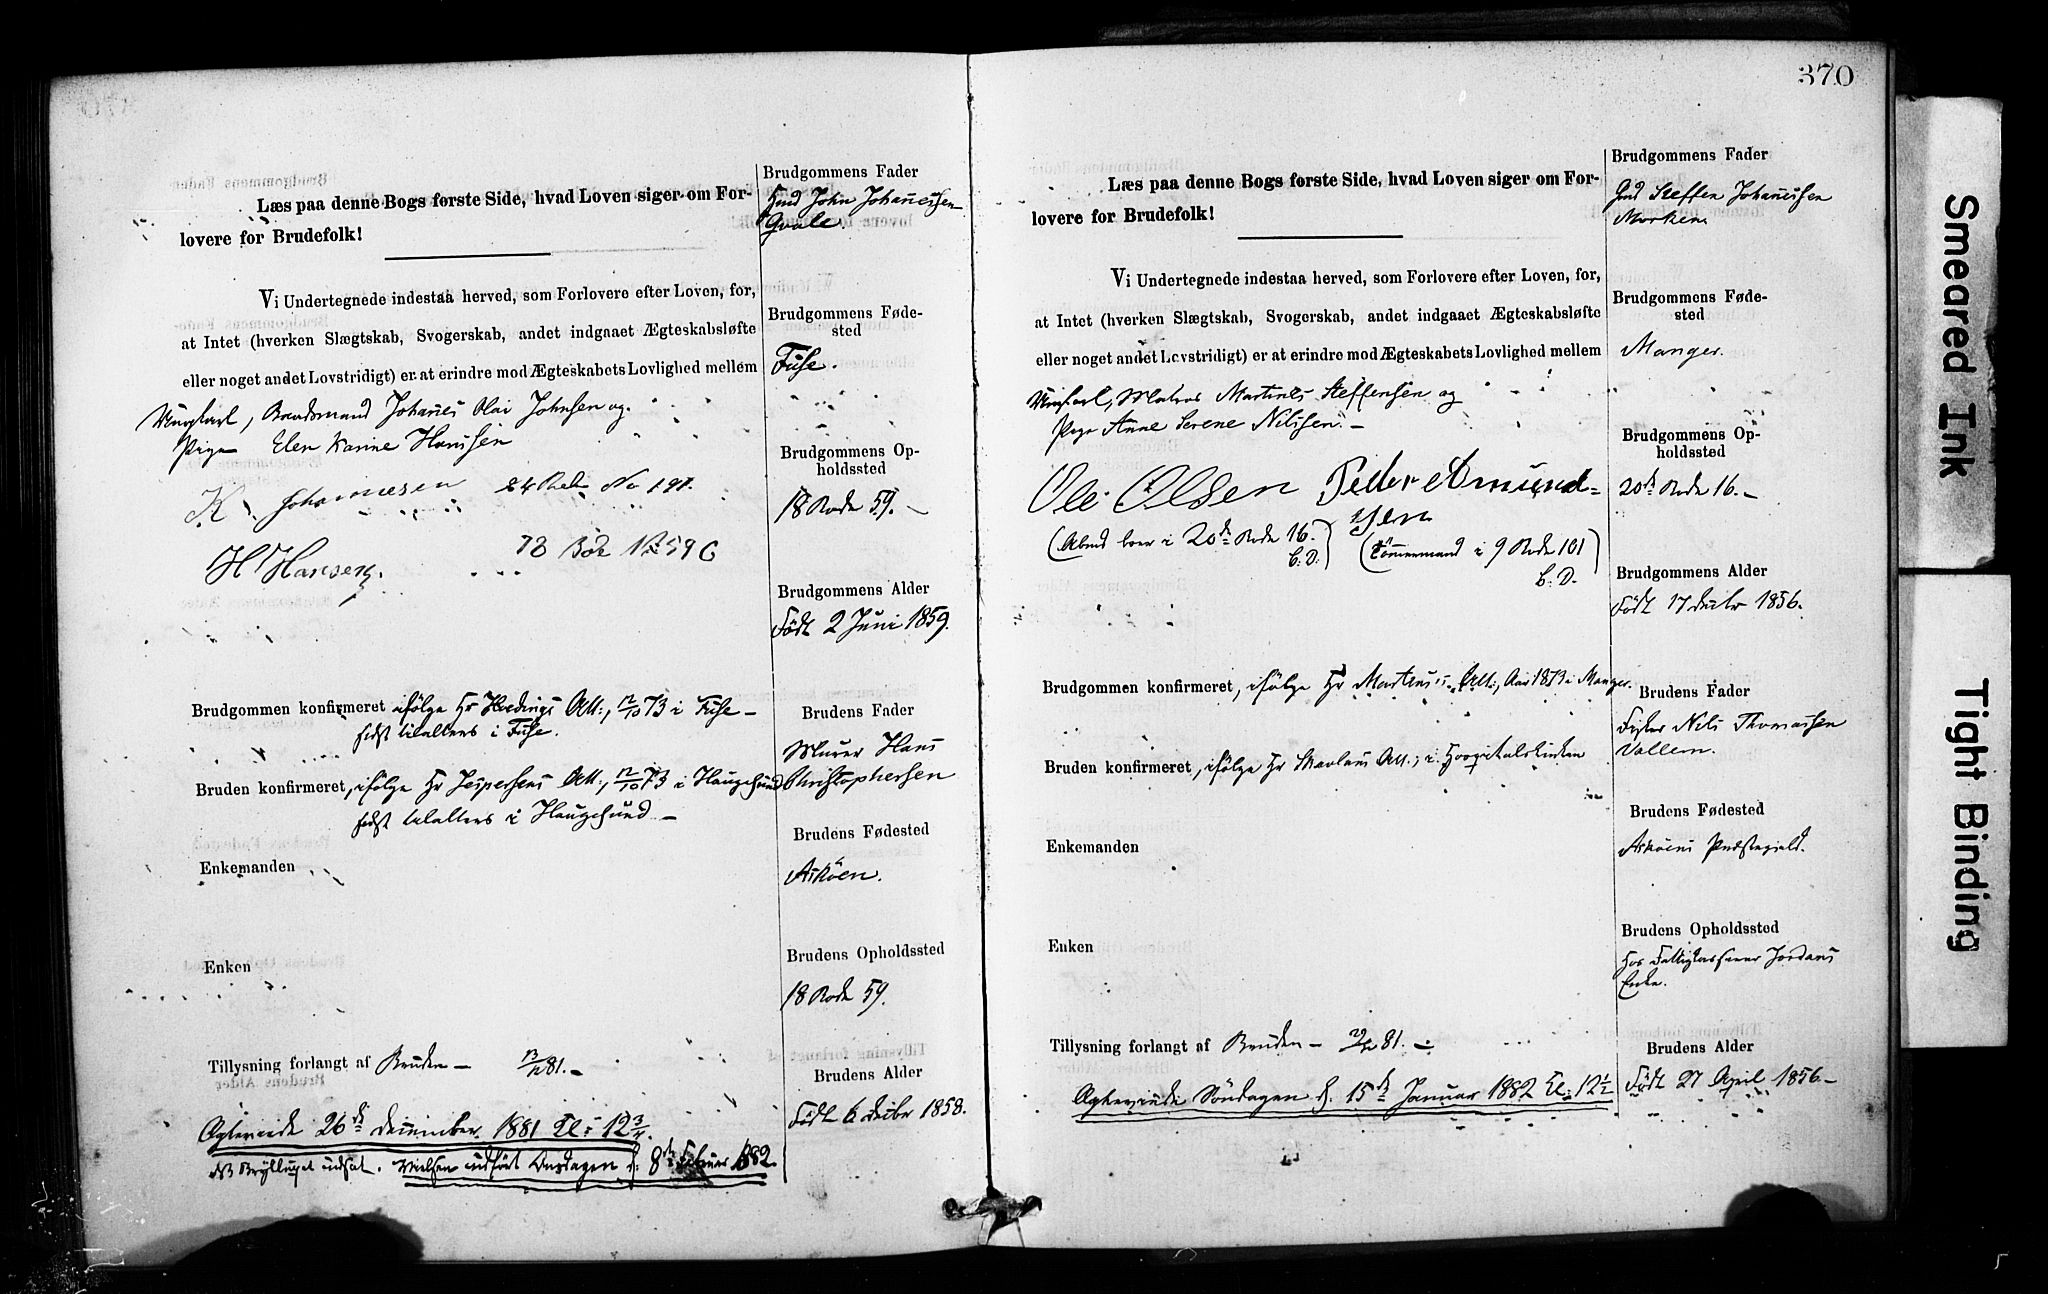 Læs paa denne Bogs første Side, hvad Loven siger om For-
lovere for Brudefolk!
Vi Undertegnede indestaa herved, som Forlovere efter Loven, for,
at Intet (hverken Slægtskab, Svogerskab, andet indgaaet Ægteskabsløfte
eller noget andet Lovstridigt) er at erindre mod Ægteskabets Lovlighed mellem
Ungkarl, Johannes Olai Johnsen og
Pige Elen Karine Hansen
K. Johannesen 24 Rode No 191.
H Hansen. 18 Rode No 59 C
Brudgommen konfirmeret ifølge Hr Hedings Att:, 12/10 73 i Fuse –
sidst tilalters i Fuse.
Bruden konfirmeret, ifølge Hr Jespersens Att:, 12/10 73 i Haugesund
sidst tilalters i Haugesund –
Enkemanden
Enken
Tillysning forlangt af Bruden – 13/12 81. –
Agtevende 26de December 1881 Kl: 12 3/4.
Brylluppet udsat. Vielsen udført Onsdagen d. 8de Februar 1882.
Brudgommens Fader
Gmd John Johannessen
Gvale.
Brudgommens Føde-
sted
Fuse.
Brudgommens Op-
holdssted
18 Rode 59. –
Brudgommens Alder
Født 2 Juni 1859.
Brudens Fader
Murer Hans
Christophersen
Brudens Fødested
Askøen.
Brudens Opholdssted
18 Rode 59.
Brudens Alder
Født 6 Decbr 1858.
370
Læs paa denne Bogs første Side, hvad Loven siger om For-
lovere for Brudefolk!
Vi Undertegnede indestaa herved, som Forlovere efter Loven, for,
at Intet (hverken Slægtskab, Svogerskab, andet indgaaet Ægteskabsløfte
eller noget andet Lovstridigt) er at erindre mod Ægteskabets Lovlighed mellem
Ungkarl, Matros Martines Steffensen og
Pige Anne Serene Nilsen. –
Ole Olsen Peder Amund=
sen
(Abmd boer i 20de Rode 16. (Tømmermand i 9 Rode 101
b: D.) b: D.)
Brudgommen konfirmeret, ifølge Hr Martens's Att:, Aar 1873 i Manger.
Bruden konfirmeret, ifølge Hr Skavlans Att:, i Hospitalskirken
Enkemanden
Enken
Tillysning forlangt af Bruden – 29/12 81. –
Agtevende Søndagen d. 15de Januar 1882 Kl: 12 1/2
Brudgommens Fader
Gmd Steffen Johannessen
Morken.
Brudgommens Føde-
sted
Manger.
Brudgommens Op-
holdssted
20de Rode 16. –
Brudgommens Alder
Født 17 Decbr 1856.
Brudens Fader
Fisker Nils Thomassen
Vallem.
Brudens Fødested
Askøens Præstegjeld.
Brudens Opholdssted
Hos Jordans
Enke.
Brudens Alder
Født 27 April 1856 –
Smeared Ink
Tight Binding